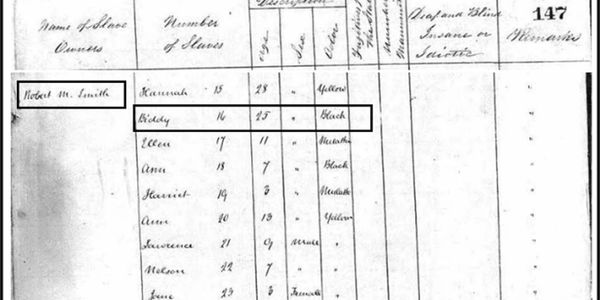 Description
147
Name of Slave Owners
Number of Slaves
Age
Sex
Color
Fugitives from the State
Number Manumitted
Deaf and Blind Insane or Idiotic
Remarks
Robert M. Smith Hannah 15 28 " Yellow "
Biddy 16 25 " Black "
Ellen 17 11 " Mulatto "
Ann 18 7 " Black "
Harriet 19 3 " Mulatto "
Ann 20 13 " Yellow "
Lawrence 21 9 Male " "
Nelson 22 7 " " "
Jane 23 3 Female " "